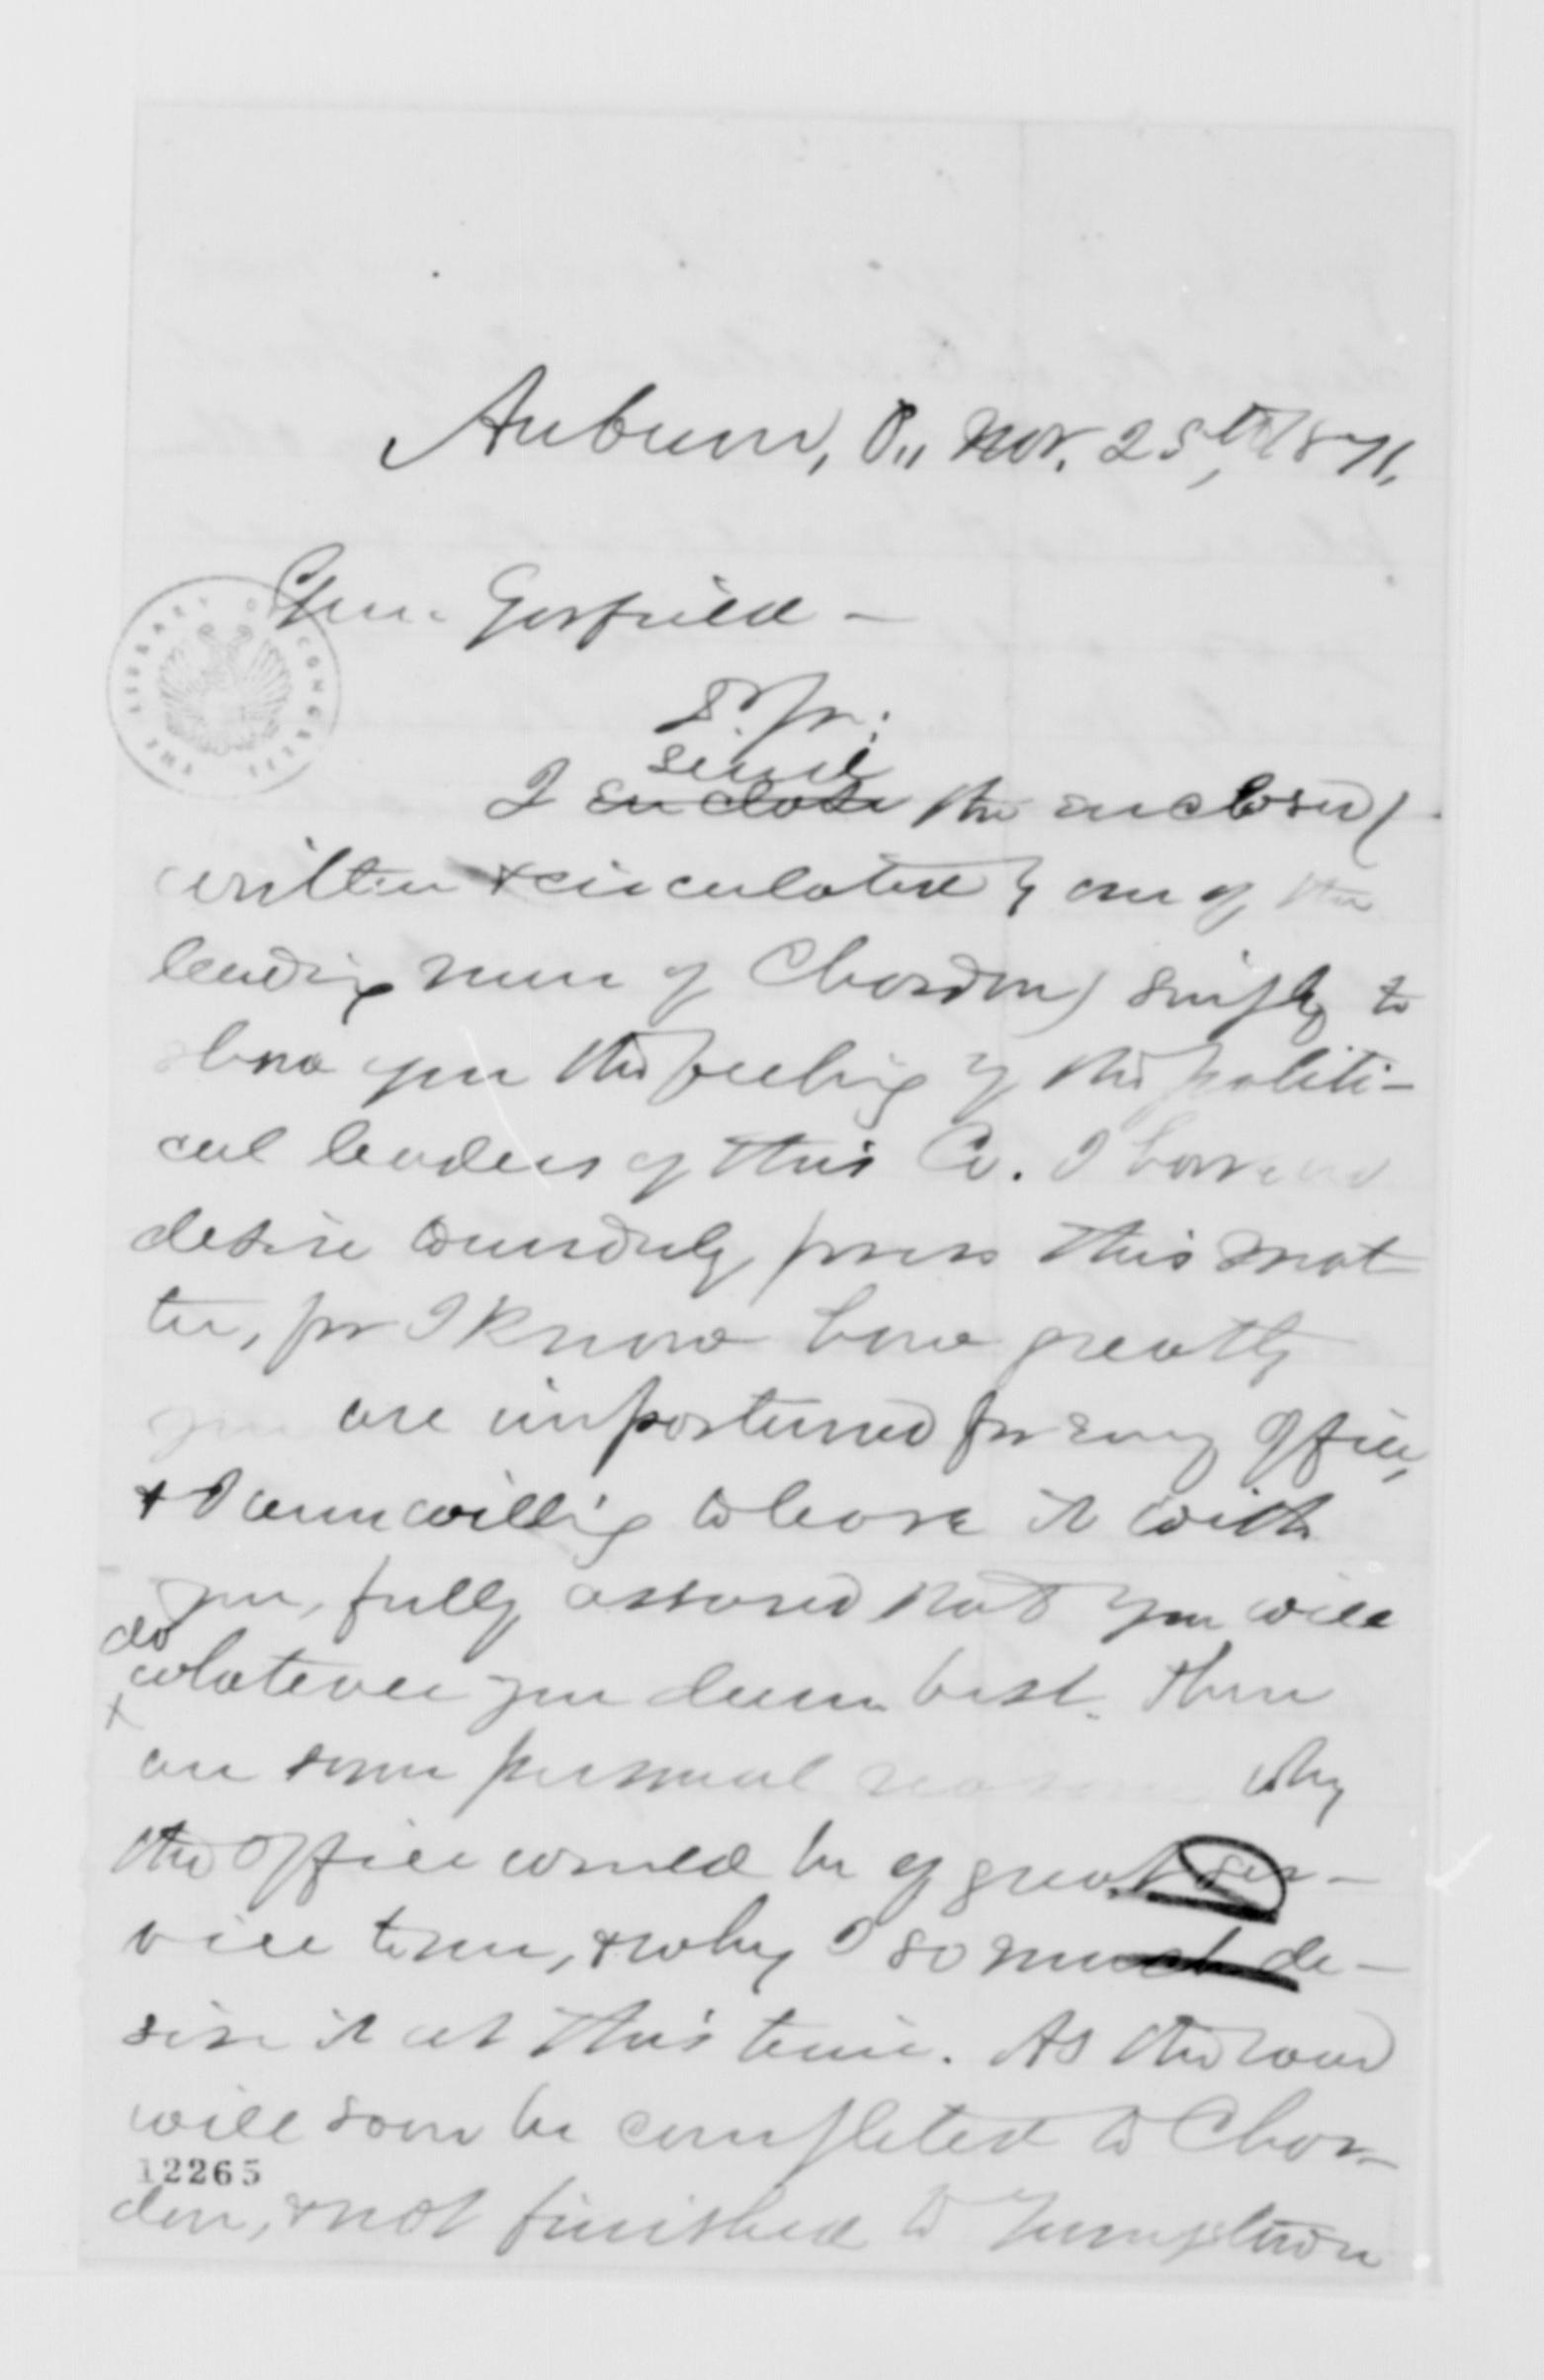 Auburn, O., Nov. 25th, 1871,
Gen. Garfield —
D. Sir:
send
I enclose the enclosed (
written & circulated by one of the
leading men of Chardon) simply to
show you the feeling of the politi-
cal leaders of this Co. I have no
desire to unduly press this mat-
ter, for I know how greatly
you are importuned for every office,
& I am willing to leave it with
you, fully assured that you will
do
whatever you deem best. There
are some personal reasons why
the office would be of great ser-
vice to me, & why I so much de-
sire it at this time. As the road
will soon be completed to Char-
12265
don, & not finished to
THE LIBRARY OF CONGRESS